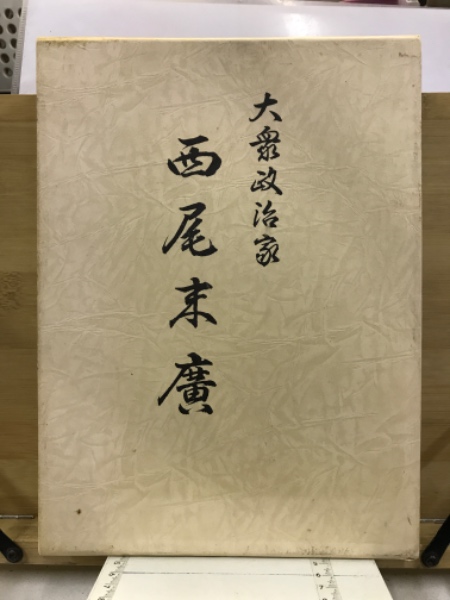 大衆政治家
西尾末廣